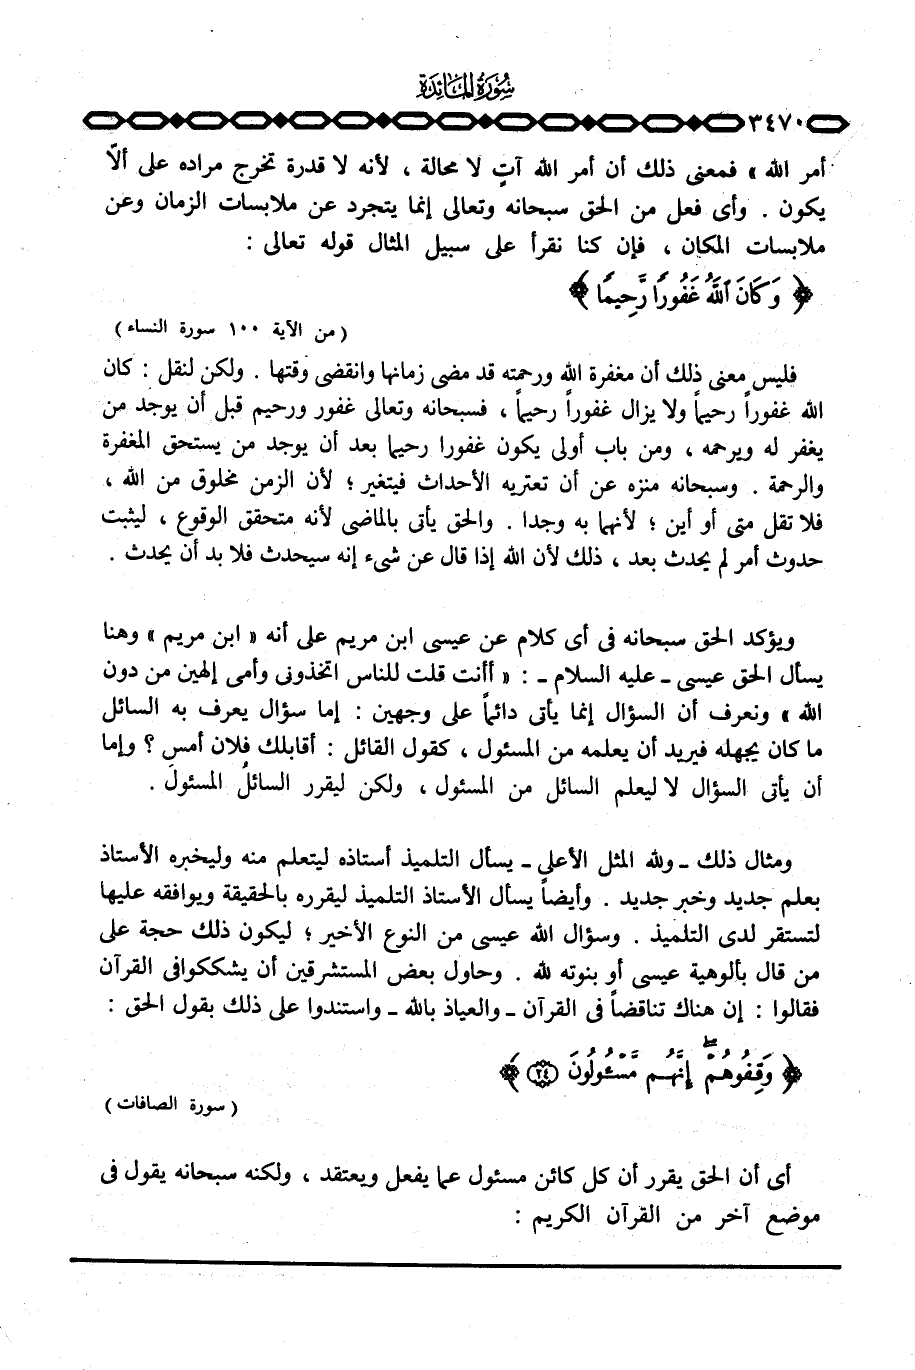 سُورَةُ المَائِدَةِ
٣٤٧٠
أمر الله » فمعنى ذلك أن أمر الله آتٍ لا محالة ، لأنه لا قدرة تخرج مراده على ألاّ
يكون . وأى فعل من الحق سبحانه وتعالى إنما يتجرد عن ملابسات الزمان وعن
ملابسات المكان ، فإن كنا نقرأ على سبيل المثال قوله تعالى :
﴿ وَكَانَ اللَّهُ غَفُورًا رَّحِيمًا ﴾
( من الآية ١٠٠ سورة النساء )
فليس معنى ذلك أن مغفرة الله ورحمته قد مضى زمانها وانقضى وقتها . ولكن لنقل : كان
الله غفوراً رحيماً ولا يزال غفوراً رحيماً ، فسبحانه وتعالى غفور ورحيم قبل أن يوجد من
يغفر له ويرحمه ، ومن باب أولى يكون غفورا رحيما بعد أن يوجد من يستحق المغفرة
والرحمة . وسبحانه منزه عن أن تعتريه الأحداث فيتغير ؛ لأن الزمن مخلوق من الله ،
فلا تقل متى أو أين ؛ لأنهما به وجدا . والحق يأتى بالماضى لأنه متحقق الوقوع ، ليثبت
حدوث أمر لم يحدث بعد ، ذلك لأن الله إذا قال عن شىء إنه سيحدث فلا بد أن يحدث .
ويؤكد الحق سبحانه فى أى كلام عن عيسى ابن مريم على أنه « ابن مريم » وهنا
يسأل الحق عيسى ـ عليه السلام ـ : « أأنت قلت للناس اتخذونى وأمى إلهين من دون
الله » ونعرف أن السؤال إنما يأتى دائماً على وجهين : إما سؤال يعرف به السائل
ما كان يجهله فيريد أن يعلمه من المسئول ، كقول القائل : أقابلك فلان أمسِ ؟ وإما
أن يأتى السؤال لا ليعلم السائل من المسئول ، ولكن ليقرر السائلُ المسئولَ .
ومثال ذلك ـ ولله المثل الأعلى ـ يسأل التلميذ أستاذه ليتعلم منه وليخبره الأستاذ
بعلم جديد وخبر جديد . وأيضاً يسأل الأستاذ التلميذ ليقرره بالحقيقة ويوافقه عليها
لتستقر لدى التلميذ . وسؤال الله عيسى من النوع الأخير ؛ ليكون ذلك حجة على
من قال بألوهية عيسى أو بنوته لله . وحاول بعض المستشرقين أن يشككوافى القرآن
فقالوا : إن هناك تناقضاً فى القرآن ـ والعياذ بالله ـ واستندوا على ذلك بقول الحق :
﴿ وَقِفُوهُمْ ۖ إِنَّهُم مَّسْئُولُونَ ٢٤ ﴾
( سورة الصافات )
أى أن الحق يقرر أن كل كائن مسئول عما يفعل ويعتقد ، ولكنه سبحانه يقول فى
موضع آخر من القرآن الكريم :